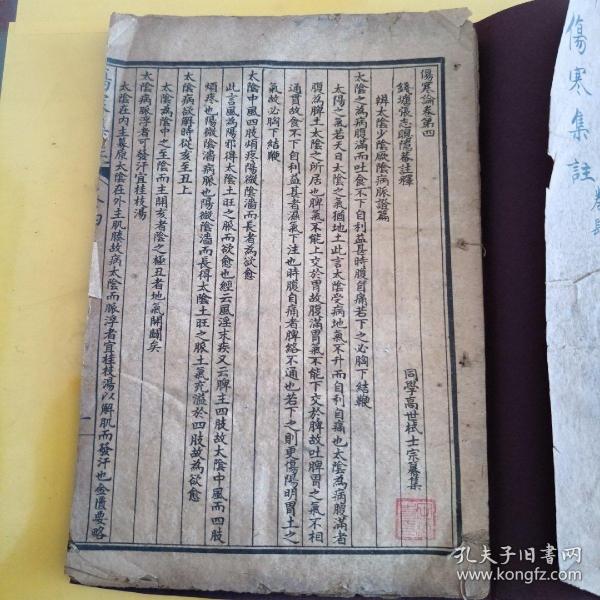 傷寒論卷第四
錢塘張志聰隱菴註釋
同學高世栻士宗纂集
辨太陰少陰厥陰病脈證篇
太陰之為病腹滿而吐食不下自利益甚時腹自痛若下之必胸下結鞕
太陽之氣若天日太陰之氣猶地土此言太陰受病地氣不升而自利自痛也太陰為病腹滿者
腹為脾土太陰之所居也脾氣不能上交於胃故腹滿胃氣不能下交於脾故吐脾胃之氣不相
通貫故食不下自利益甚者濕氣下注也時腹自痛者脾絡不通也若下之則更傷陽明胃土之
氣故必胸下結鞕
太陰中風四肢煩疼陽微陰濇而長者為欲愈
此言風為陽邪得太陰土旺之脈而欲愈也經云風淫末疾又云脾主四肢故太陰中風而四肢
煩疼也陽微陰濇病脈也陽微陰濇而長得太陰土旺之脈土氣充溢於四肢故為欲愈
太陰病欲解時從亥至丑上
太陰為陰中之至陰而主開亥者陰之極丑者地氣開闢矣
太陰病脈浮者可發汗宜桂枝湯
太陰在內主募原太陰在外主肌腠故病太陰而脈浮者宜桂枝湯以解肌而發汗也金匱要略
傷寒集註
孔夫子旧书网
www.kongfz.com